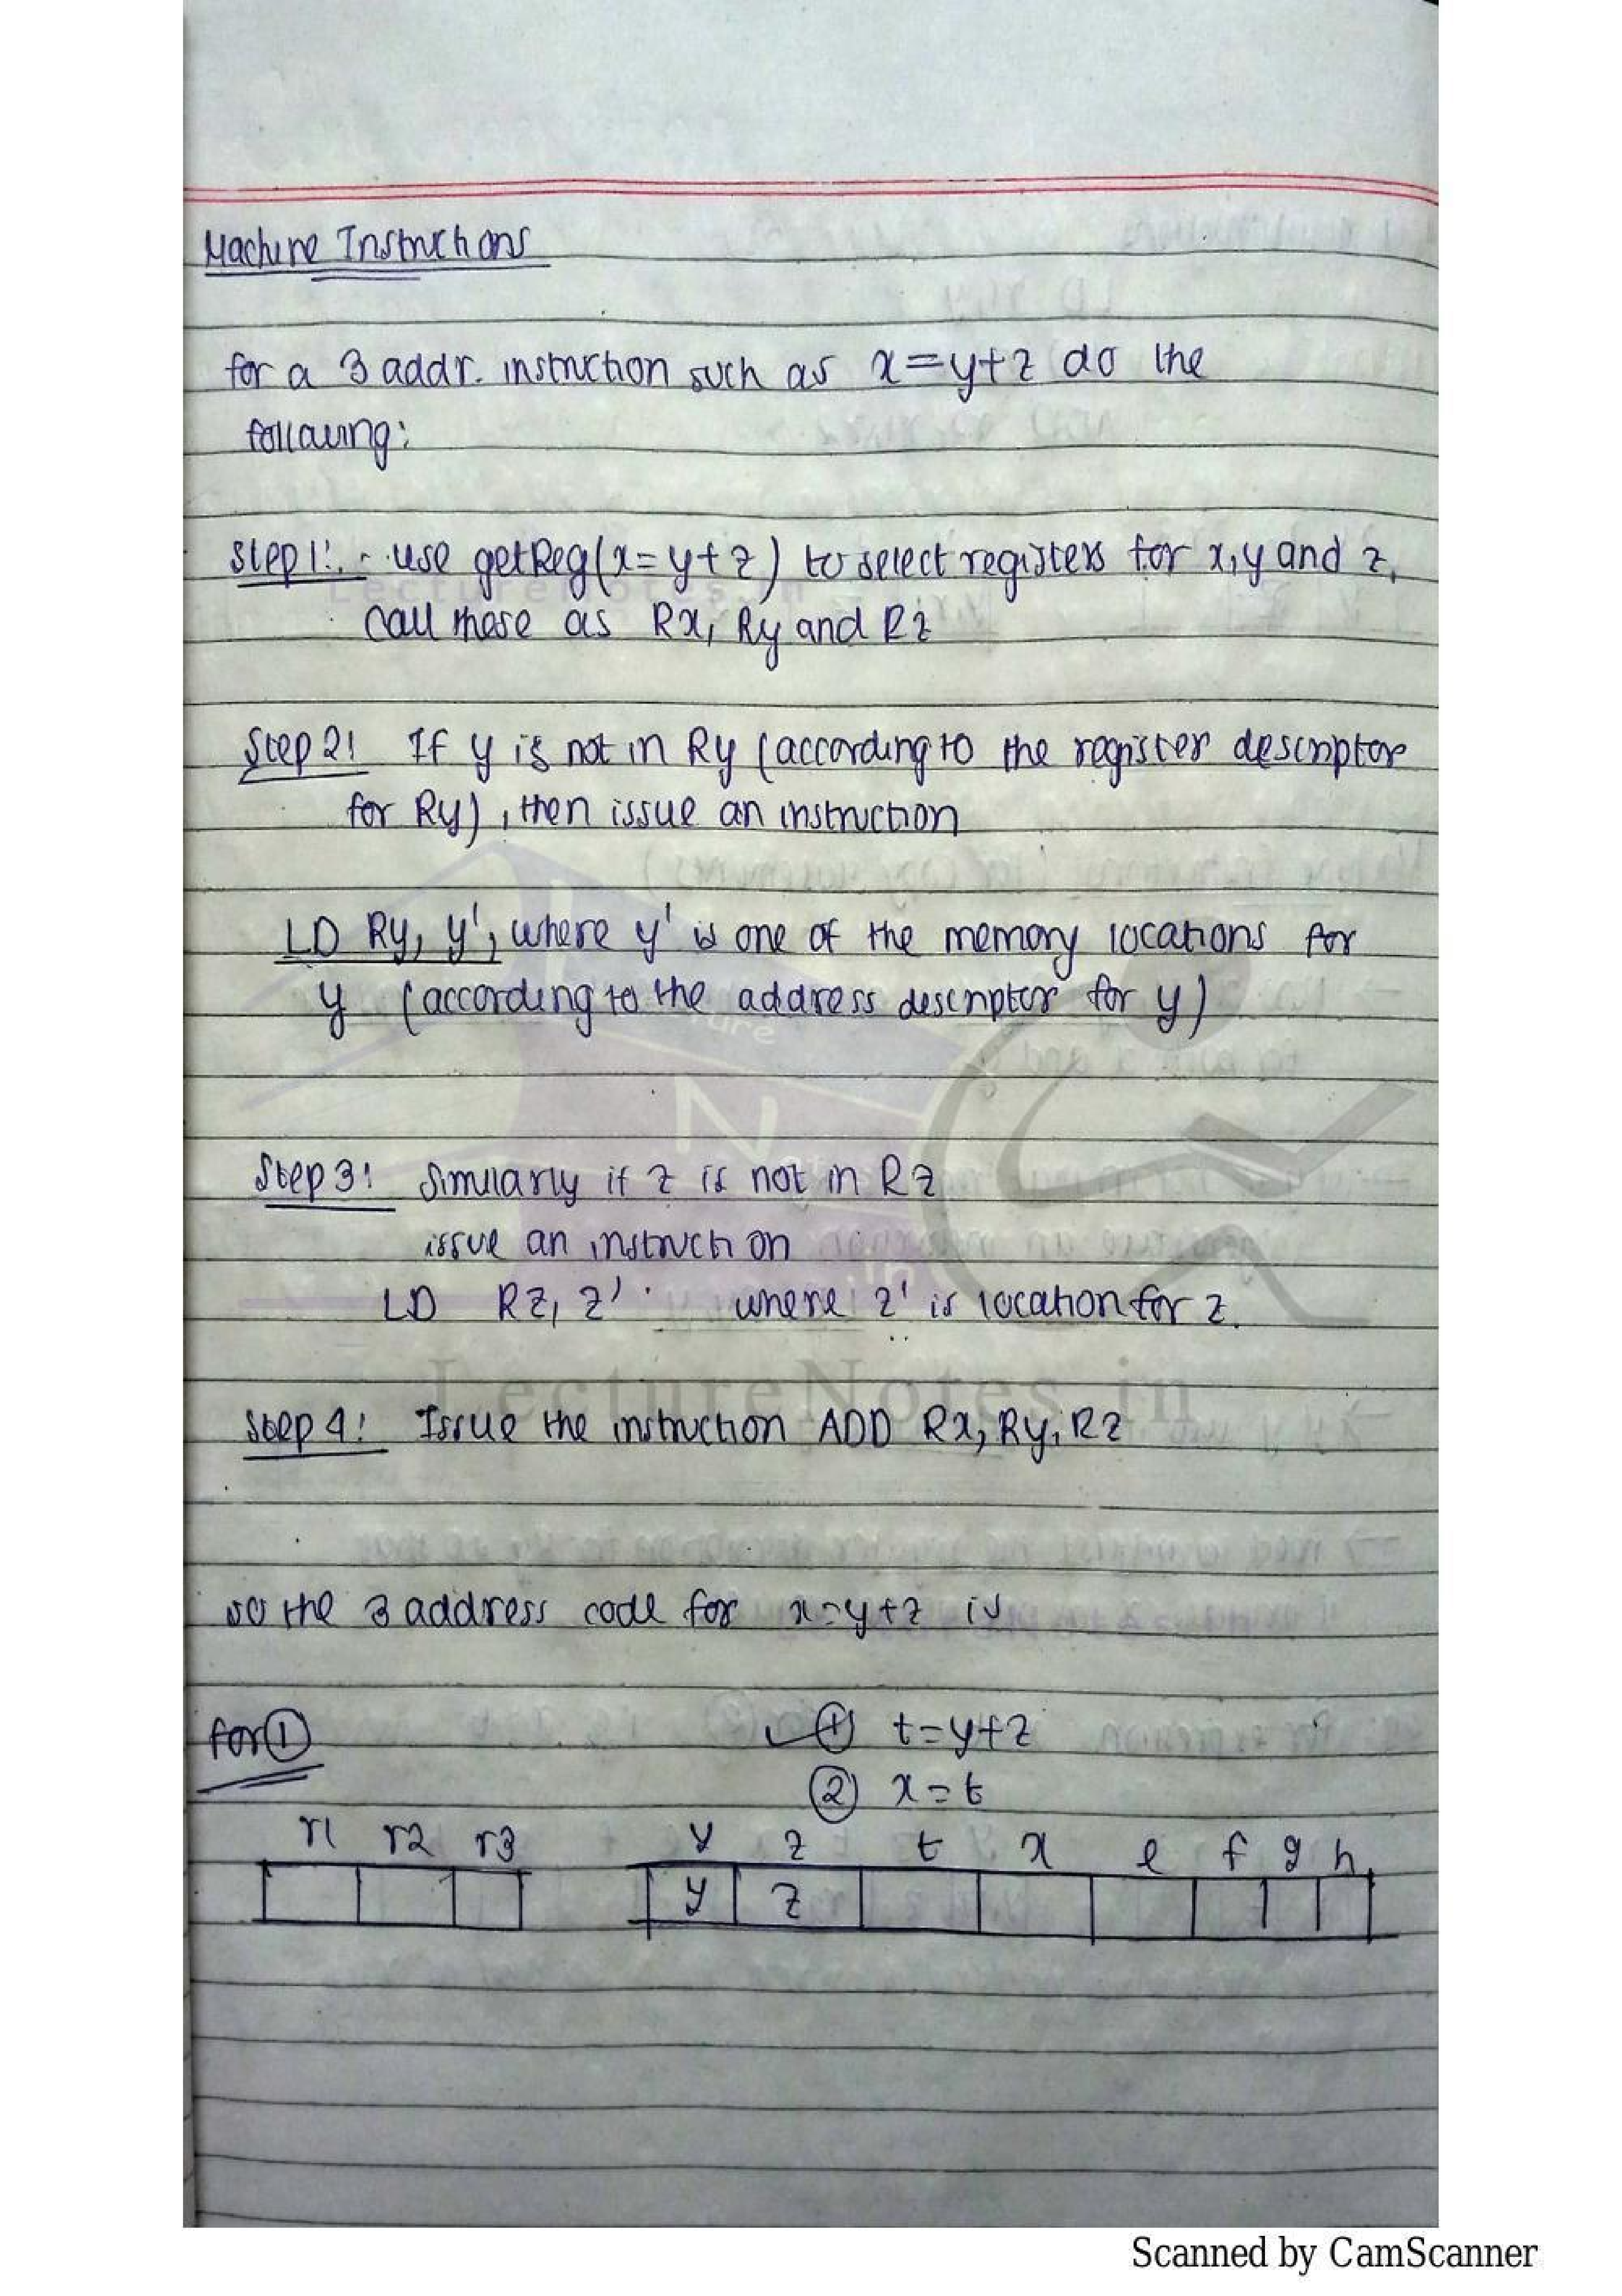 Machine Instructions
for a 3 addr. instruction such as x=y+z do the
following:
Step1:. - use getReg(x=y+z) to select registers for x,y and z,
LectureNotes.in
call these as Rx, Ry and Rz
Step 2: If y is not in Ry (according to the register descriptor
for Ry), then issue an instruction
LD Ry, y', where y' is one of the memory locations for
y (according to the address descriptor for y)
Step 3: Similarly if z is not in Rz
issue an instruction
LD Rz, z' where z' is location for z.
LectureNotes.in
Step 4: Issue the instruction ADD Rx, Ry, Rz
so the 3 address code for x=y+z is
for ① ① t=y+z
② x=t
r1 r2 r3 y z t x e f g h
y z
Scanned by CamScanner